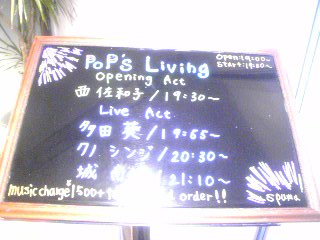 PoP's Living
Open:19:00~
Start:19:00~
Opening Act
西 佐和子/19:30~
Live Act
多田 葵/19:55~
クノ シンジ/20:30~
城 /21:10~
music charge 1500+ order!!